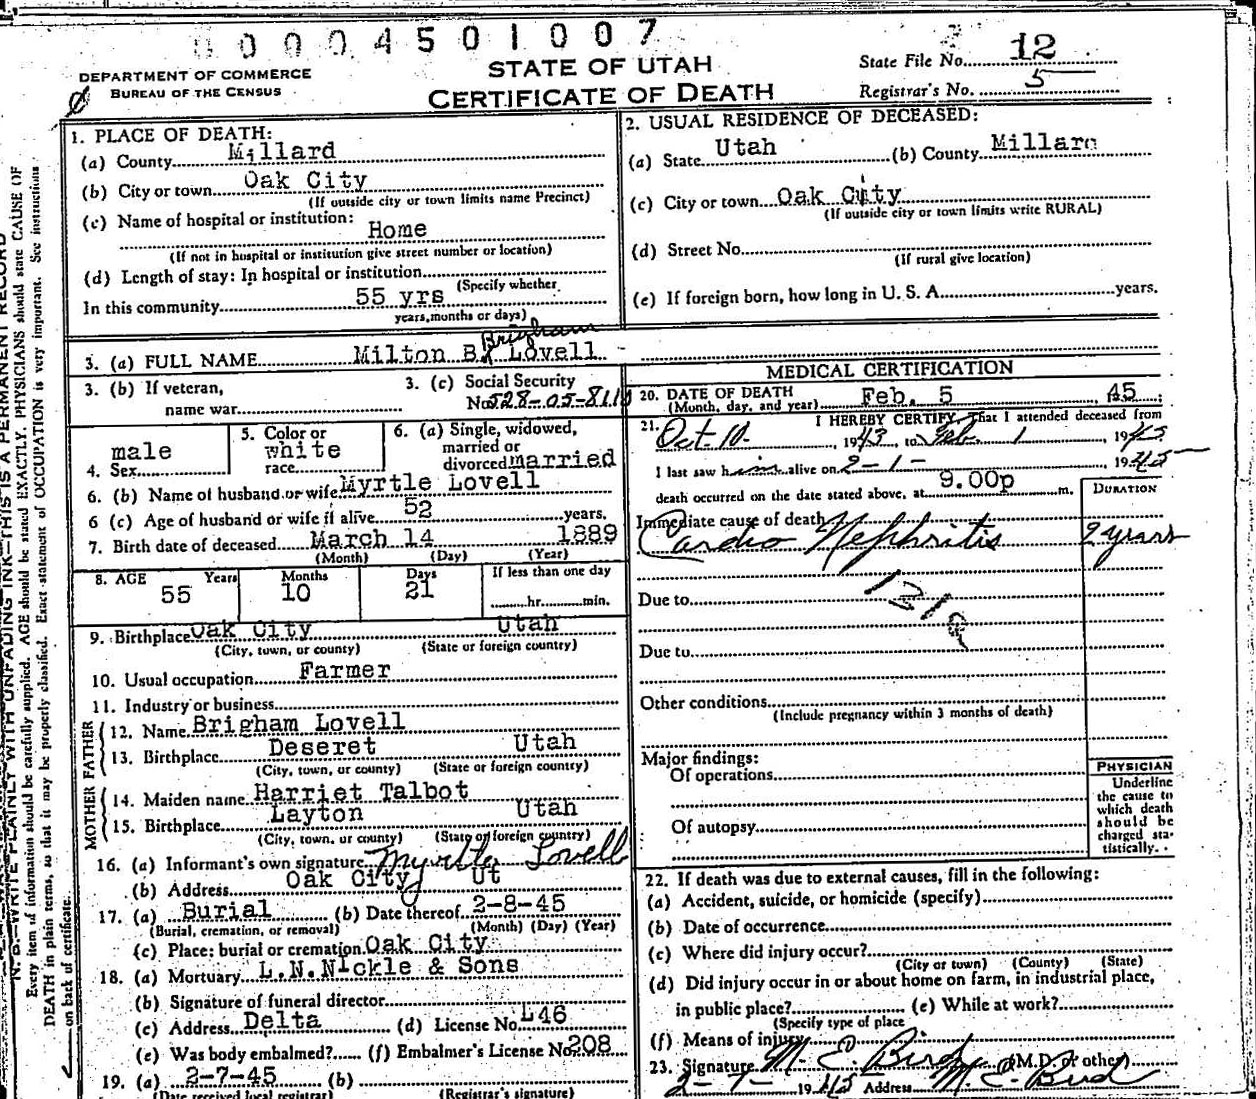 0 0 0 0 4 5 0 1 0 0 7
DEPARTMENT OF COMMERCE
BUREAU OF THE CENSUS
STATE OF UTAH
CERTIFICATE OF DEATH
State File No. 12
Registrar's No. 5
1. PLACE OF DEATH:
(a) County Millard
(b) City or town Oak City
(If outside city or town limits name Precinct)
(c) Name of hospital or institution:
Home
(If not in hospital or institution give street number or location)
(d) Length of stay: In hospital or institution
(Specify whether
In this community 55 yrs
years, months or days)
2. USUAL RESIDENCE OF DECEASED:
(a) State Utah (b) County Millard
(c) City or town Oak City
(If outside city or town limits write RURAL)
(d) Street No.
(If rural give location)
(e) If foreign born, how long in U. S. A. years.
Brigham
3. (a) FULL NAME Milton B. Lovell
3. (b) If veteran,
name war
3. (c) Social Security
No. 528-05-8110
male
4. Sex
5. Color or
white
race
6. (a) Single, widowed,
married or
divorced married
6. (b) Name of husband or wife Myrtle Lovell
6 (c) Age of husband or wife if alive 52 years.
7. Birth date of deceased March 14 1889
(Month) (Day) (Year)
8. AGE Years Months Days If less than one day
55 10 21 hr. min.
9. Birthplace Oak City Utah
(City, town, or county) (State or foreign country)
10. Usual occupation Farmer
11. Industry or business
FATHER
12. Name Brigham Lovell
13. Birthplace Deseret Utah
(City, town, or county) (State or foreign country)
MOTHER
14. Maiden name Harriet Talbot
15. Birthplace Layton Utah
(City, town, or county) (State or foreign country)
16. (a) Informant's own signature Myrtle Lovell
(b) Address Oak City Ut
17. (a) Burial (b) Date thereof 2-8-45
(Burial, cremation, or removal) (Month) (Day) (Year)
(c) Place; burial or cremation Oak City
18. (a) Mortuary L.N.Nickle & Sons
(b) Signature of funeral director
(c) Address Delta (d) License No. L46
(e) Was body embalmed? (f) Embalmer's License No. 208
19. (a) 2-7-45 (b)
(Date received local registrar) (Registrar's signature)
MEDICAL CERTIFICATION
20. DATE OF DEATH
(Month, day, and year) Feb. 5 1945
21. I HEREBY CERTIFY, That I attended deceased from
Oct. 10. 1943, to Feb. 1 1945
I last saw him alive on 2-1- 1945
death occurred on the date stated above, at 9.00p m.
DURATION
Immediate cause of death
Cardio Nephritis 2 years
Due to
Due to
Other conditions
(Include pregnancy within 3 months of death)
Major findings:
Of operations
Of autopsy
PHYSICIAN
Underline
the cause to
which death
should be
charged sta-
tistically.
22. If death was due to external causes, fill in the following:
(a) Accident, suicide, or homicide (specify)
(b) Date of occurrence
(c) Where did injury occur?
(City or town) (County) (State)
(d) Did injury occur in or about home on farm, in industrial place,
in public place? (e) While at work?
(Specify type of place
(f) Means of injury
23. Signature M. E. Bird (M.D. or other)
2-7- 1945 Address M E Bird
N. B.—WRITE PLAINLY WITH UNFADING INK—THIS IS A PERMANENT RECORD
Every item of information should be carefully supplied. AGE should be stated EXACTLY. PHYSICIANS should state CAUSE OF
DEATH in plain terms, so that it may be properly classified. Exact statement of OCCUPATION is very important. See instructions
on back of certificate.